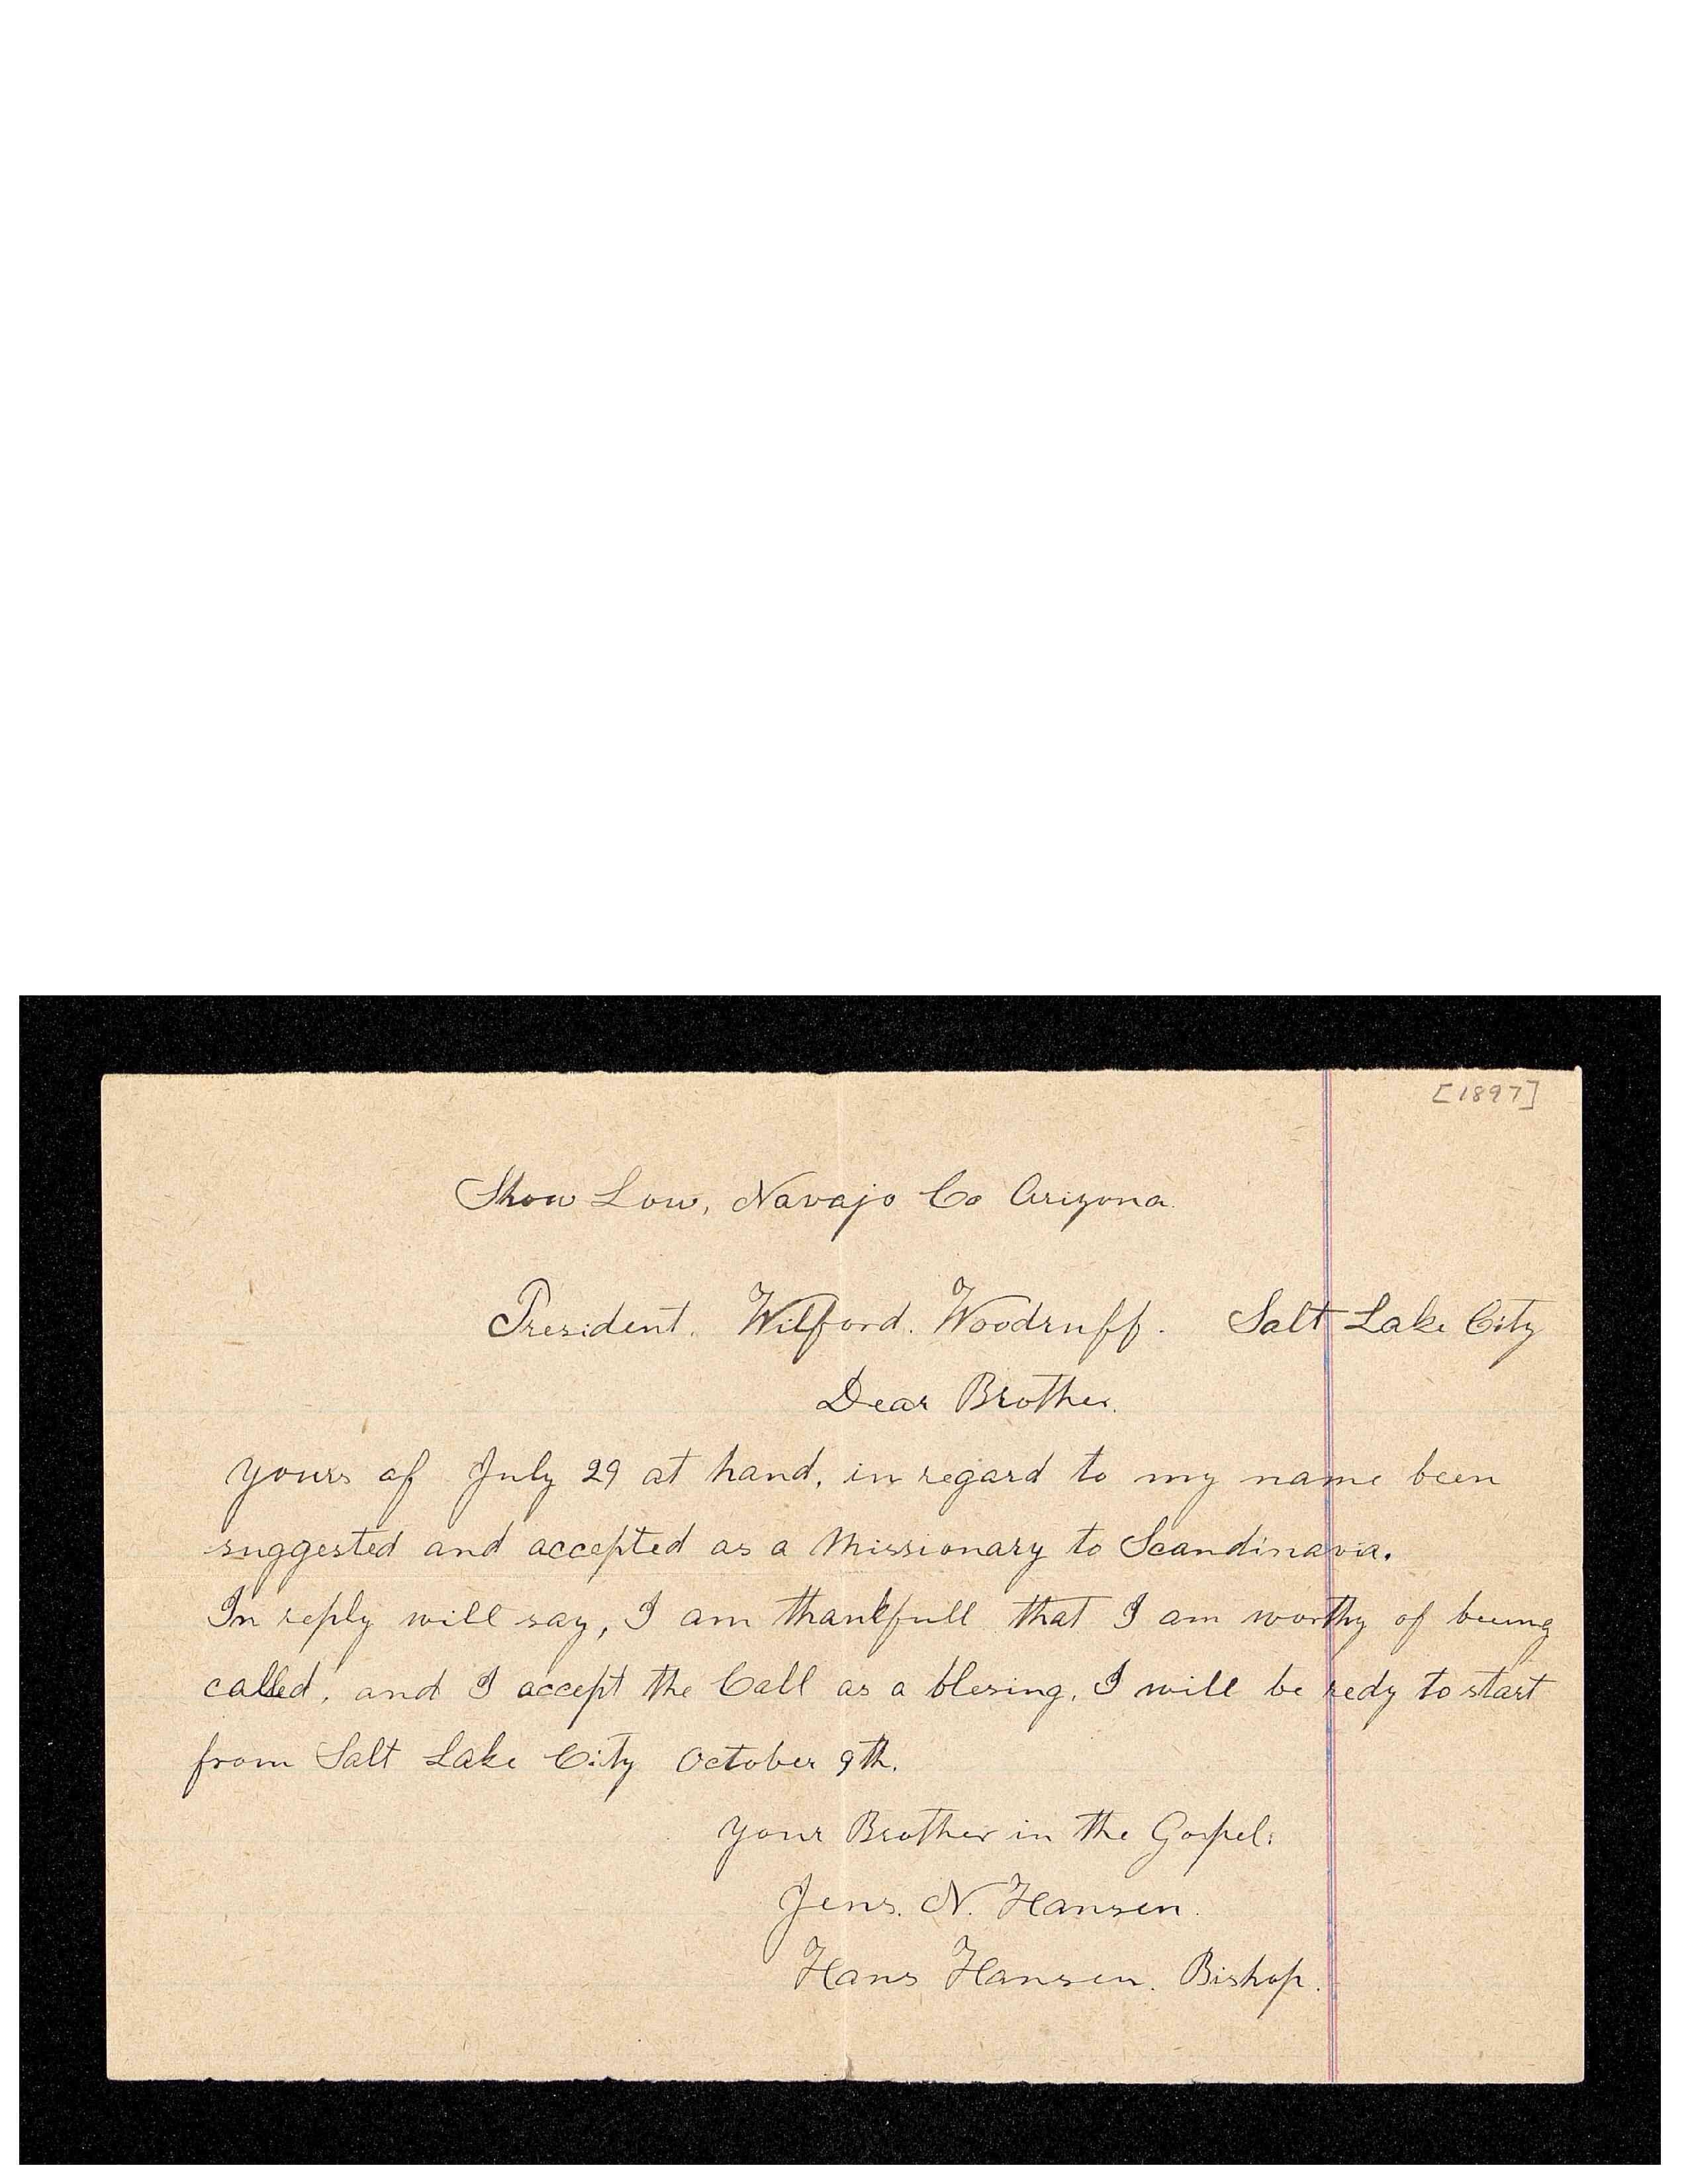 [1897]
Show Low, Navajo Co Arizona.
President. Wilford. Woodruff. Salt Lake City
Dear Brother.
Yours of July 29 at hand, in regard to my name been
suggested and accepted as a Missionary to Scandinavia.
In reply will say, I am thankfull that I am worthy of being
called, and I accept the Call as a blesing, I will be redy to start
from Salt Lake City October 9th.
Your Brother in the Gospel.
Jens. N. Hansen.
Hans Hansen. Bishop.